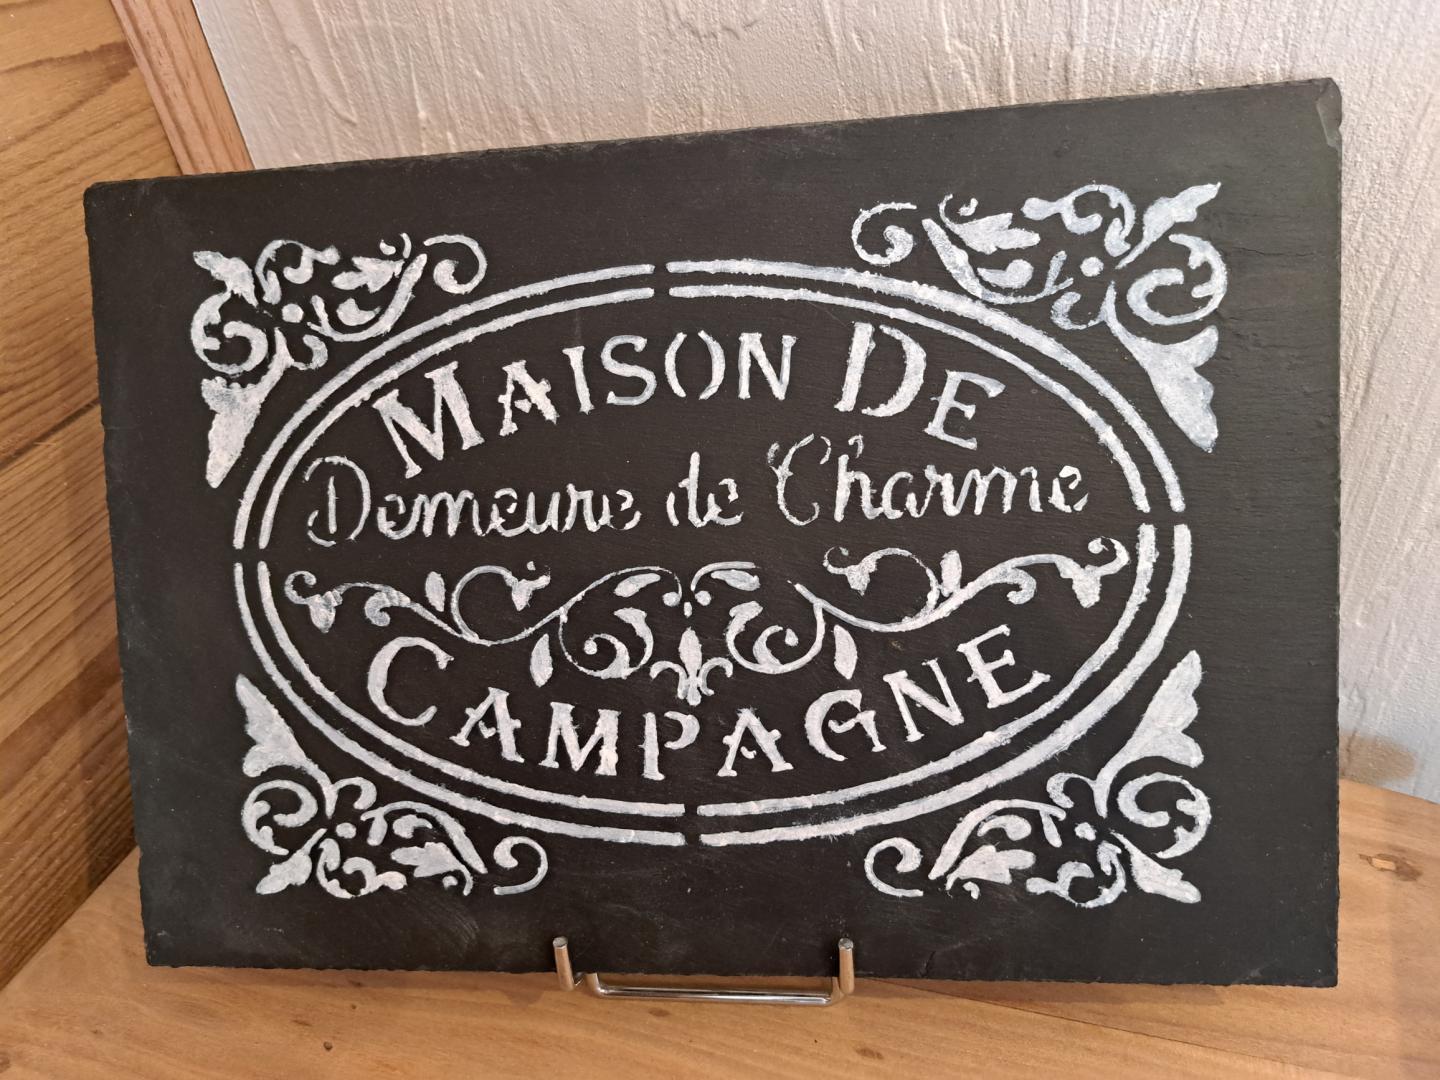 MAISON DE
Demeure de Charme
CAMPAGNE